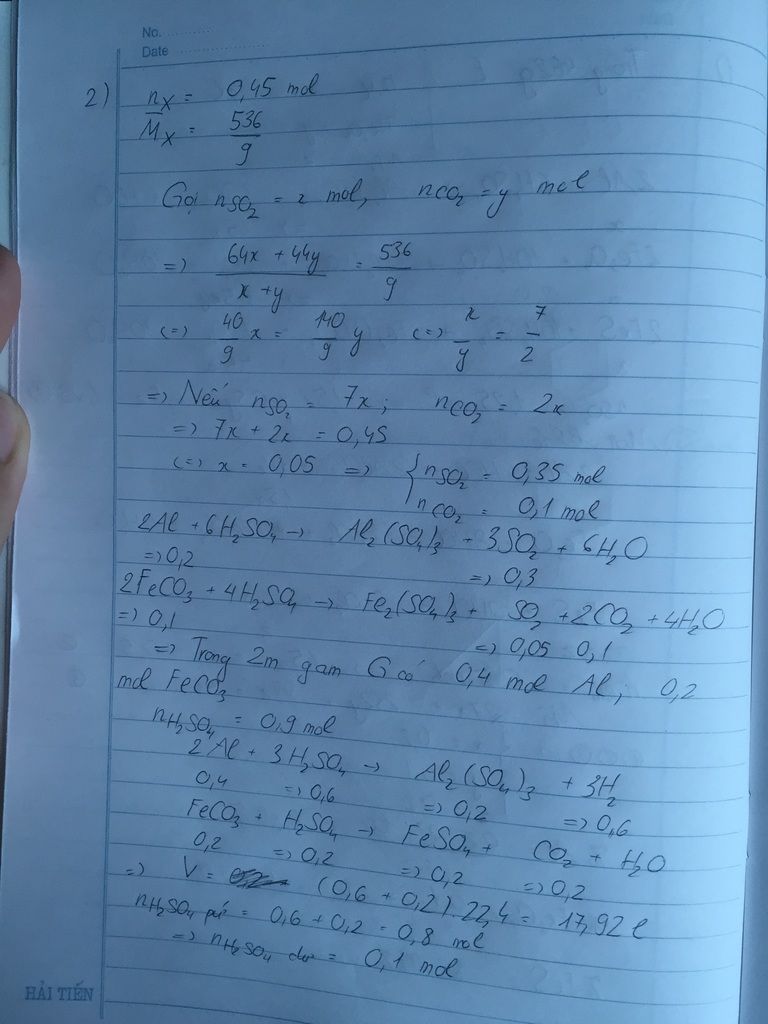 No. ............
Date ............
2) nX = 0,45 mol
M̅X = 536/9
Gọi nSO2 = x mol, nCO2 = y mol
=> (64x + 44y)/(x + y) = 536/9
<=> 40/9 x = 140/9 y <=> x/y = 7/2
=> Nếu nSO2 = 7x; nCO2 = 2x
=> 7x + 2x = 0,45
<=> x = 0,05 => { nSO2 = 0,35 mol
nCO2 = 0,1 mol
2Al + 6H2SO4 -> Al2(SO4)3 + 3SO2 + 6H2O
=> 0,2 => 0,3
2FeCO3 + 4H2SO4 -> Fe2(SO4)3 + SO2 + 2CO2 + 4H2O
=> 0,1 => 0,05 0,1
=> Trong 2m gam G có 0,4 mol Al; 0,2
mol FeCO3
nH2SO4 = 0,9 mol
2Al + 3H2SO4 -> Al2(SO4)3 + 3H2
0,4 => 0,6 => 0,2 => 0,6
FeCO3 + H2SO4 -> FeSO4 + CO2 + H2O
0,2 => 0,2 => 0,2 => 0,2
=> V = (0,6 + 0,2).22,4 = 17,92 l
nH2SO4 pứ = 0,6 + 0,2 = 0,8 mol
=> nH2SO4 dư = 0,1 mol
HẢI TIẾN